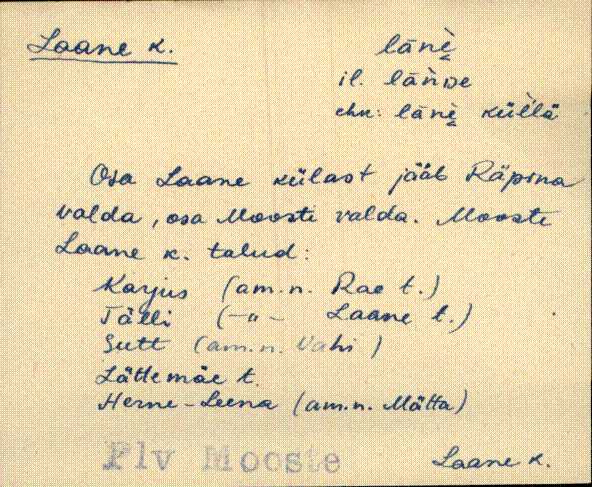 Laane k.
länè
il. länDe
ehk: länè küĺĺä
Osa Laane külast jääb Räpina
valda, osa Mooste valda. Mooste
Laane k. talud:
Karjus (am.n. Rae t.)
Tälli (-"- Laane t.)
Sutt (am.n. Vahi)
Lättemäe t.
Herne-Leena (am.n. Mätta)
Plv Mooste
Laane k.